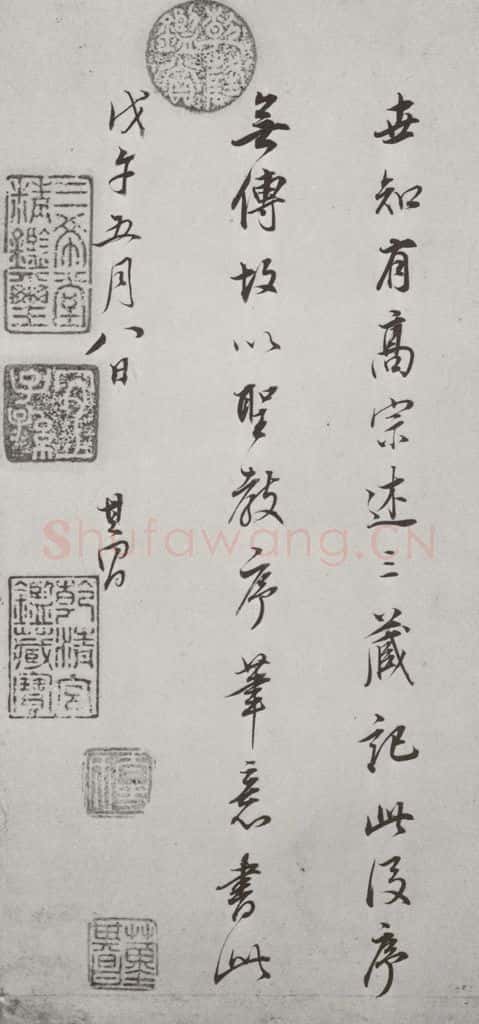 世知有高宗述三藏記此後序
無傳故以聖教序筆意書此
戊午五月八日 其昌
乾隆鑑賞
三希堂精鑑璽
宜子孫
乾清宮鑑藏寶
董其昌
Shufawang.CN